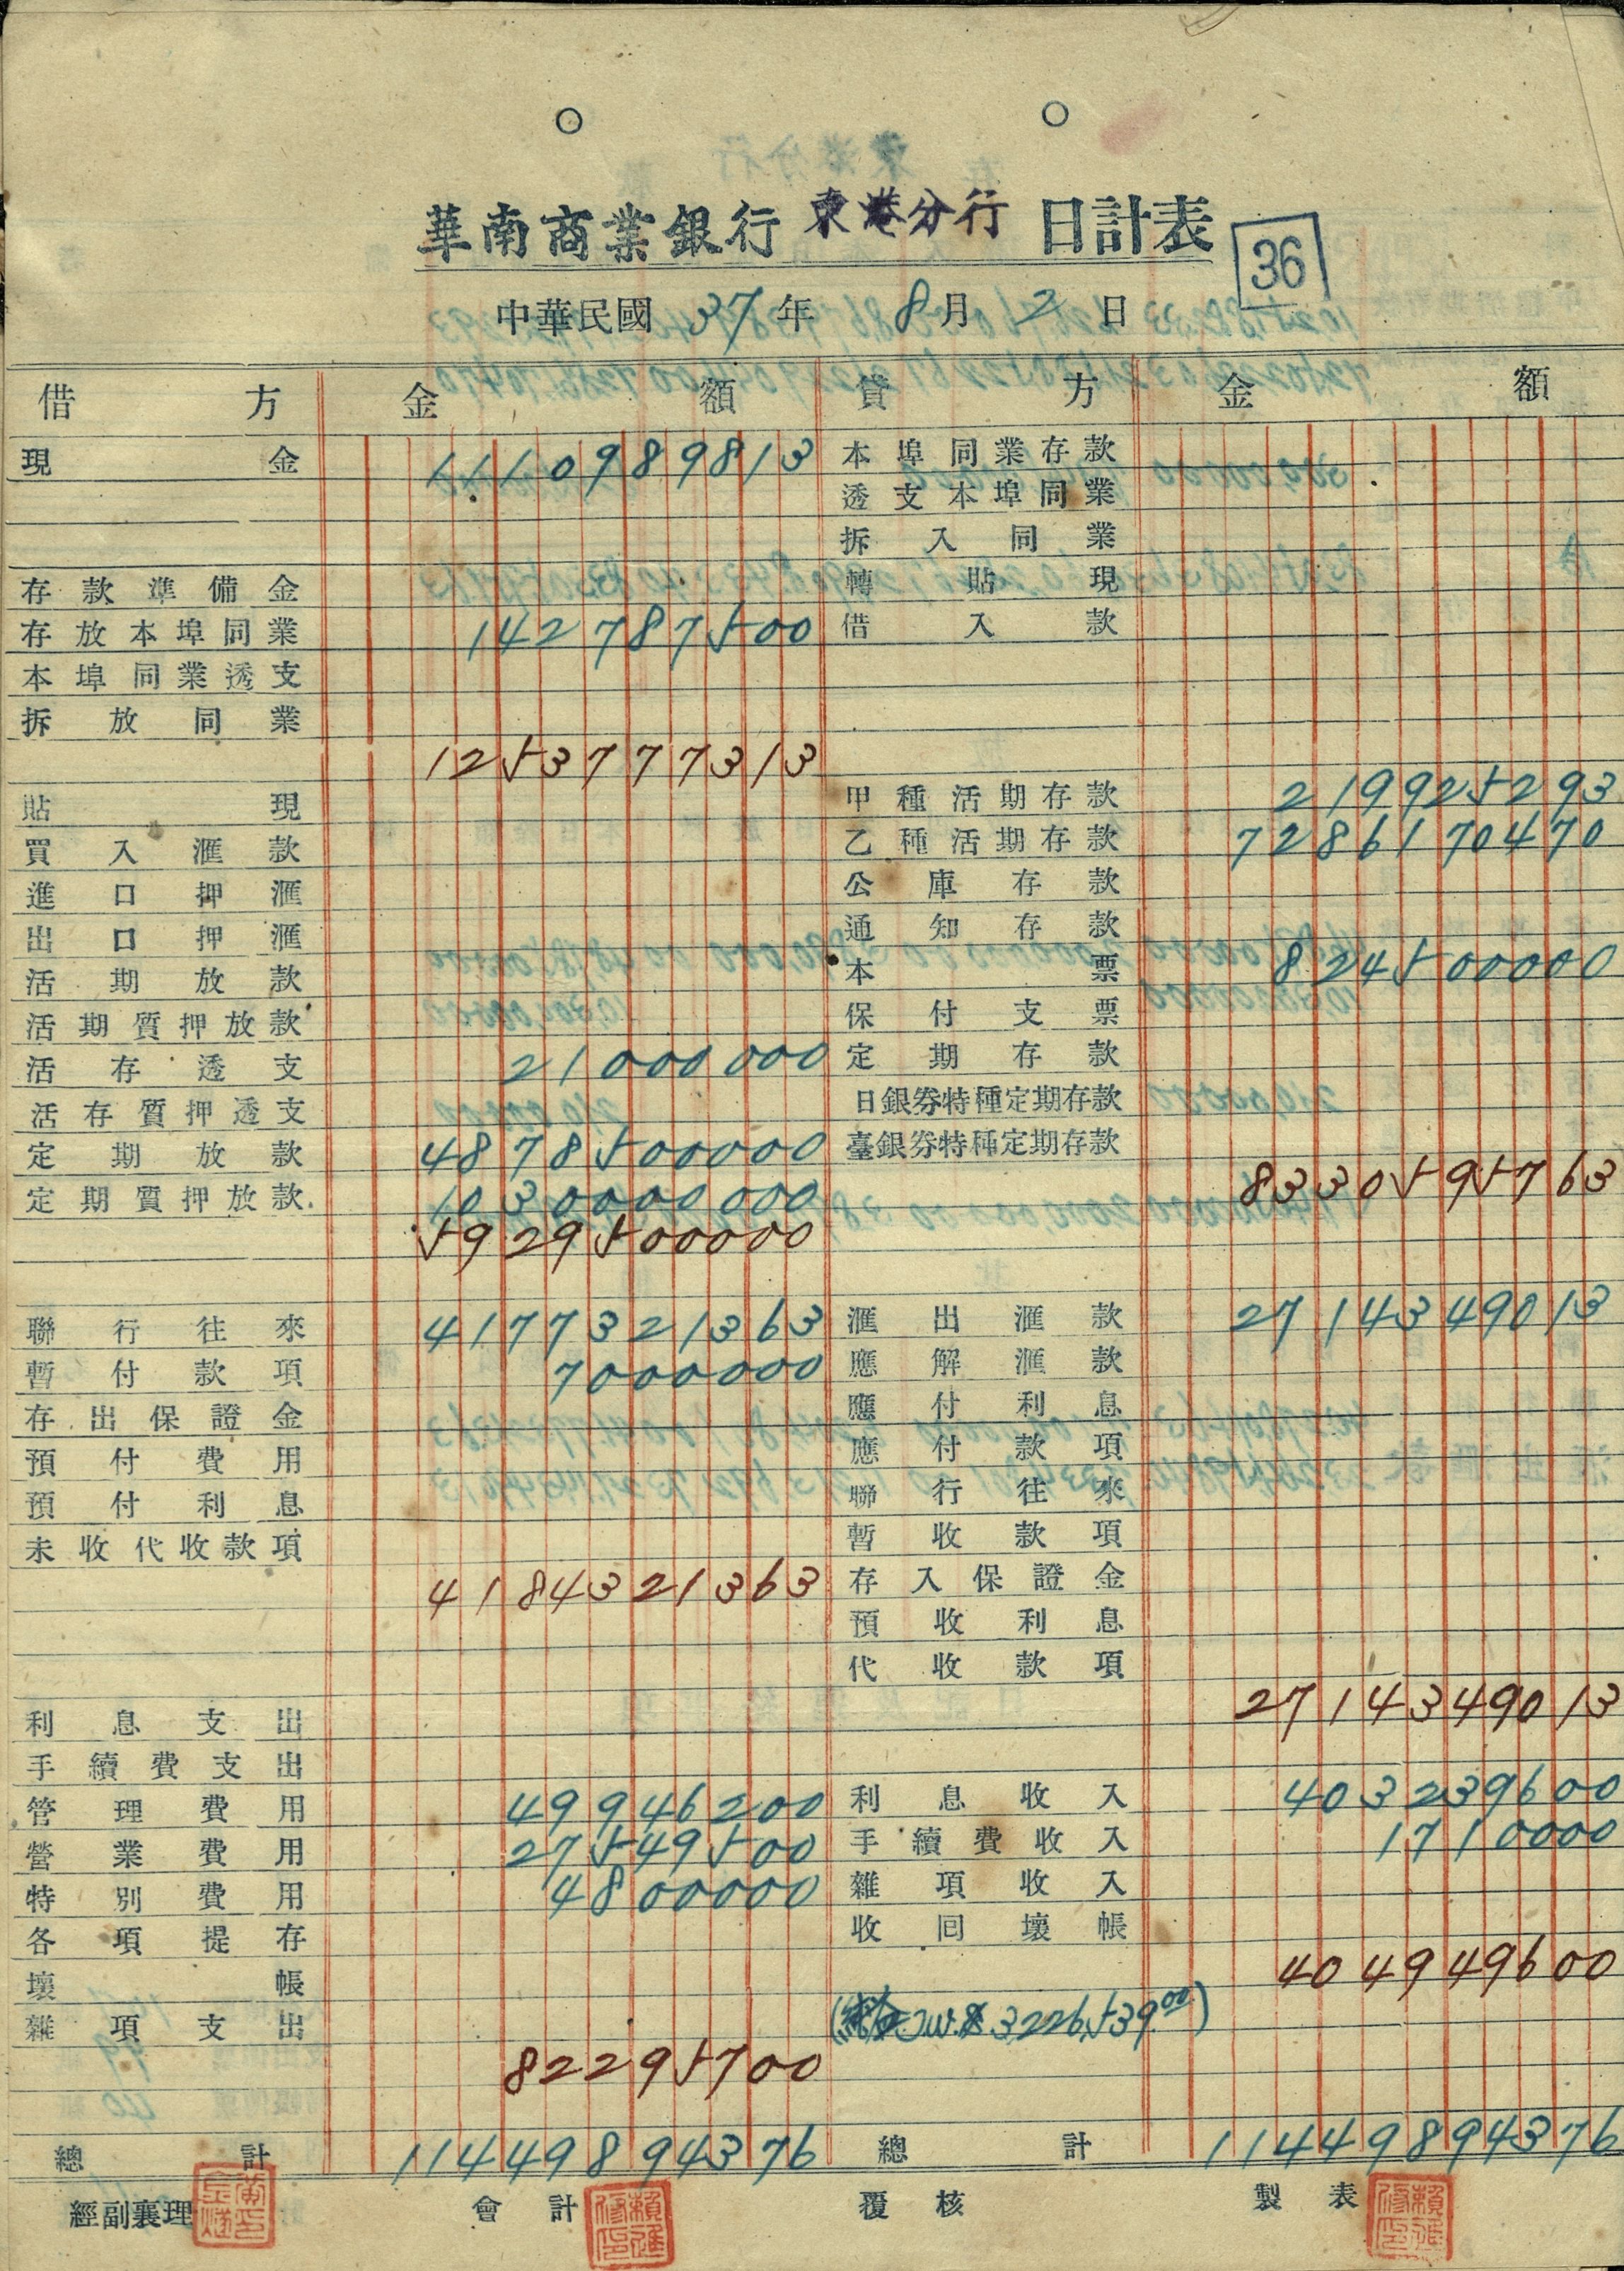 華南商業銀行 東港分行 日計表 36
中華民國 37 年 8 月 2 日
借方 金額 貸方 金額
現金 1110989813 本埠同業存款
透支本埠同業
拆入同業
存款準備金 轉貼現
存放本埠同業 142787500 借入款
本埠同業透支
拆放同業
1253777313
貼現 甲種活期存款 219925293
買入滙款 乙種活期存款 7286170470
進口押滙 公庫存款
出口押滙 通知存款
活期放款 本票 824500000
活期質押放款 保付支票
活存透支 21000000 定期存款
活存質押透支 日銀券特種定期存款
定期放款 4878500000 臺銀券特種定期存款
定期質押放款 1030000000 8330595763
5929500000
聯行往來 4177321363 滙出滙款 2714349013
暫付款項 7000000 應解滙款
存出保證金 應付利息
預付費用 應付款項
預付利息 聯行往來
未收代收款項 暫收款項
4184321363 存入保證金
預收利息
代收款項
利息支出 2714349013
手續費支出
管理費用 49946200 利息收入 403239600
營業費用 27549500 手續費收入 1710000
特別費用 4800000 雜項收入
各項提存 收回壞帳
壞帳 404949600
雜項支出 3,226,539.00)
82295700
總計 11449894376 總計 11449894376
經副襄理 會計 覆核 製表